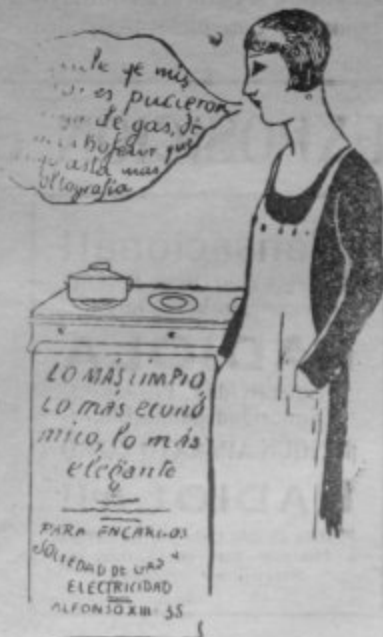 que mis
es pucieron
de gas, dé
que
asta mas
LO MÁS LIMPIO
LO MÁS ECONÓ
MICO, lo más
elegante
PARA ENCARGOS
SOCIEDAD DE GAS Y
ELECTRICIDAD
ALFONSO XIII-35